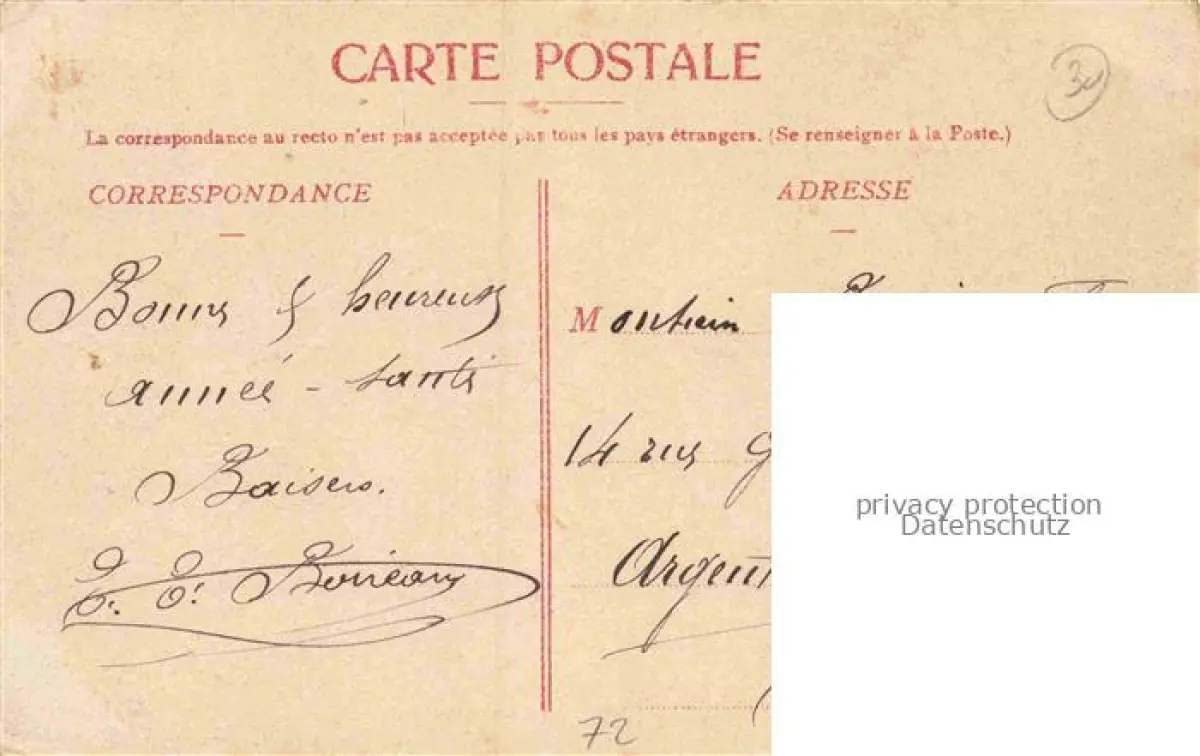 CARTE POSTALE
30
La correspondance au recto n'est pas acceptée par tous les pays étrangers. (Se renseigner à la Poste.)
CORRESPONDANCE
Bonne & heureuse
année - santé
Baisers.
ADRESSE
M
14 rue G
Argent
privacy protection
Datenschutz
72